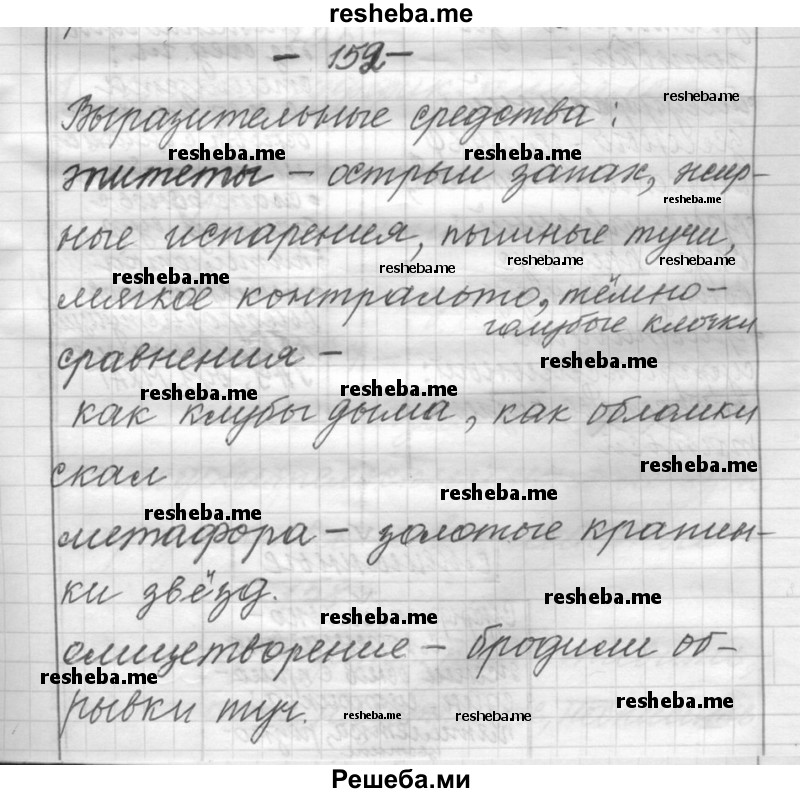 resheba.me
- 152 -
resheba.me
Выразительные средства:
resheba.me resheba.me
эпитеты – острый запах, жир-
resheba.me
ные испарения, пышные тучи,
resheba.me resheba.me resheba.me
resheba.me
мягкое контральто, тёмно-
голубые клочки
сравнения –
resheba.me
resheba.me resheba.me
как клубы дыма, как обломки
скал
resheba.me
resheba.me
resheba.me
метафора – золотые крапин-
ки звёзд.
resheba.me
resheba.me
олицетворение – бродили об-
resheba.me
рывки туч.
resheba.me resheba.me resheba.me
Решеба.ми